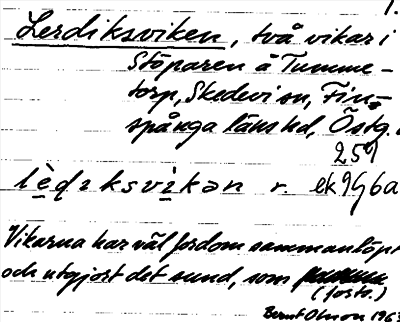 1.
Lerdiksviken, två vikar i
Stöparen å Tumme-
torp, Skedevi sn, Fin-
spånga läns hd, Östg.
259
lèdiksvikən r. ek 9G6a
Vikarna har väl fordom sammanlöpt
och utgjort det sund, som
(forts.)
Bernt Olsson 1963